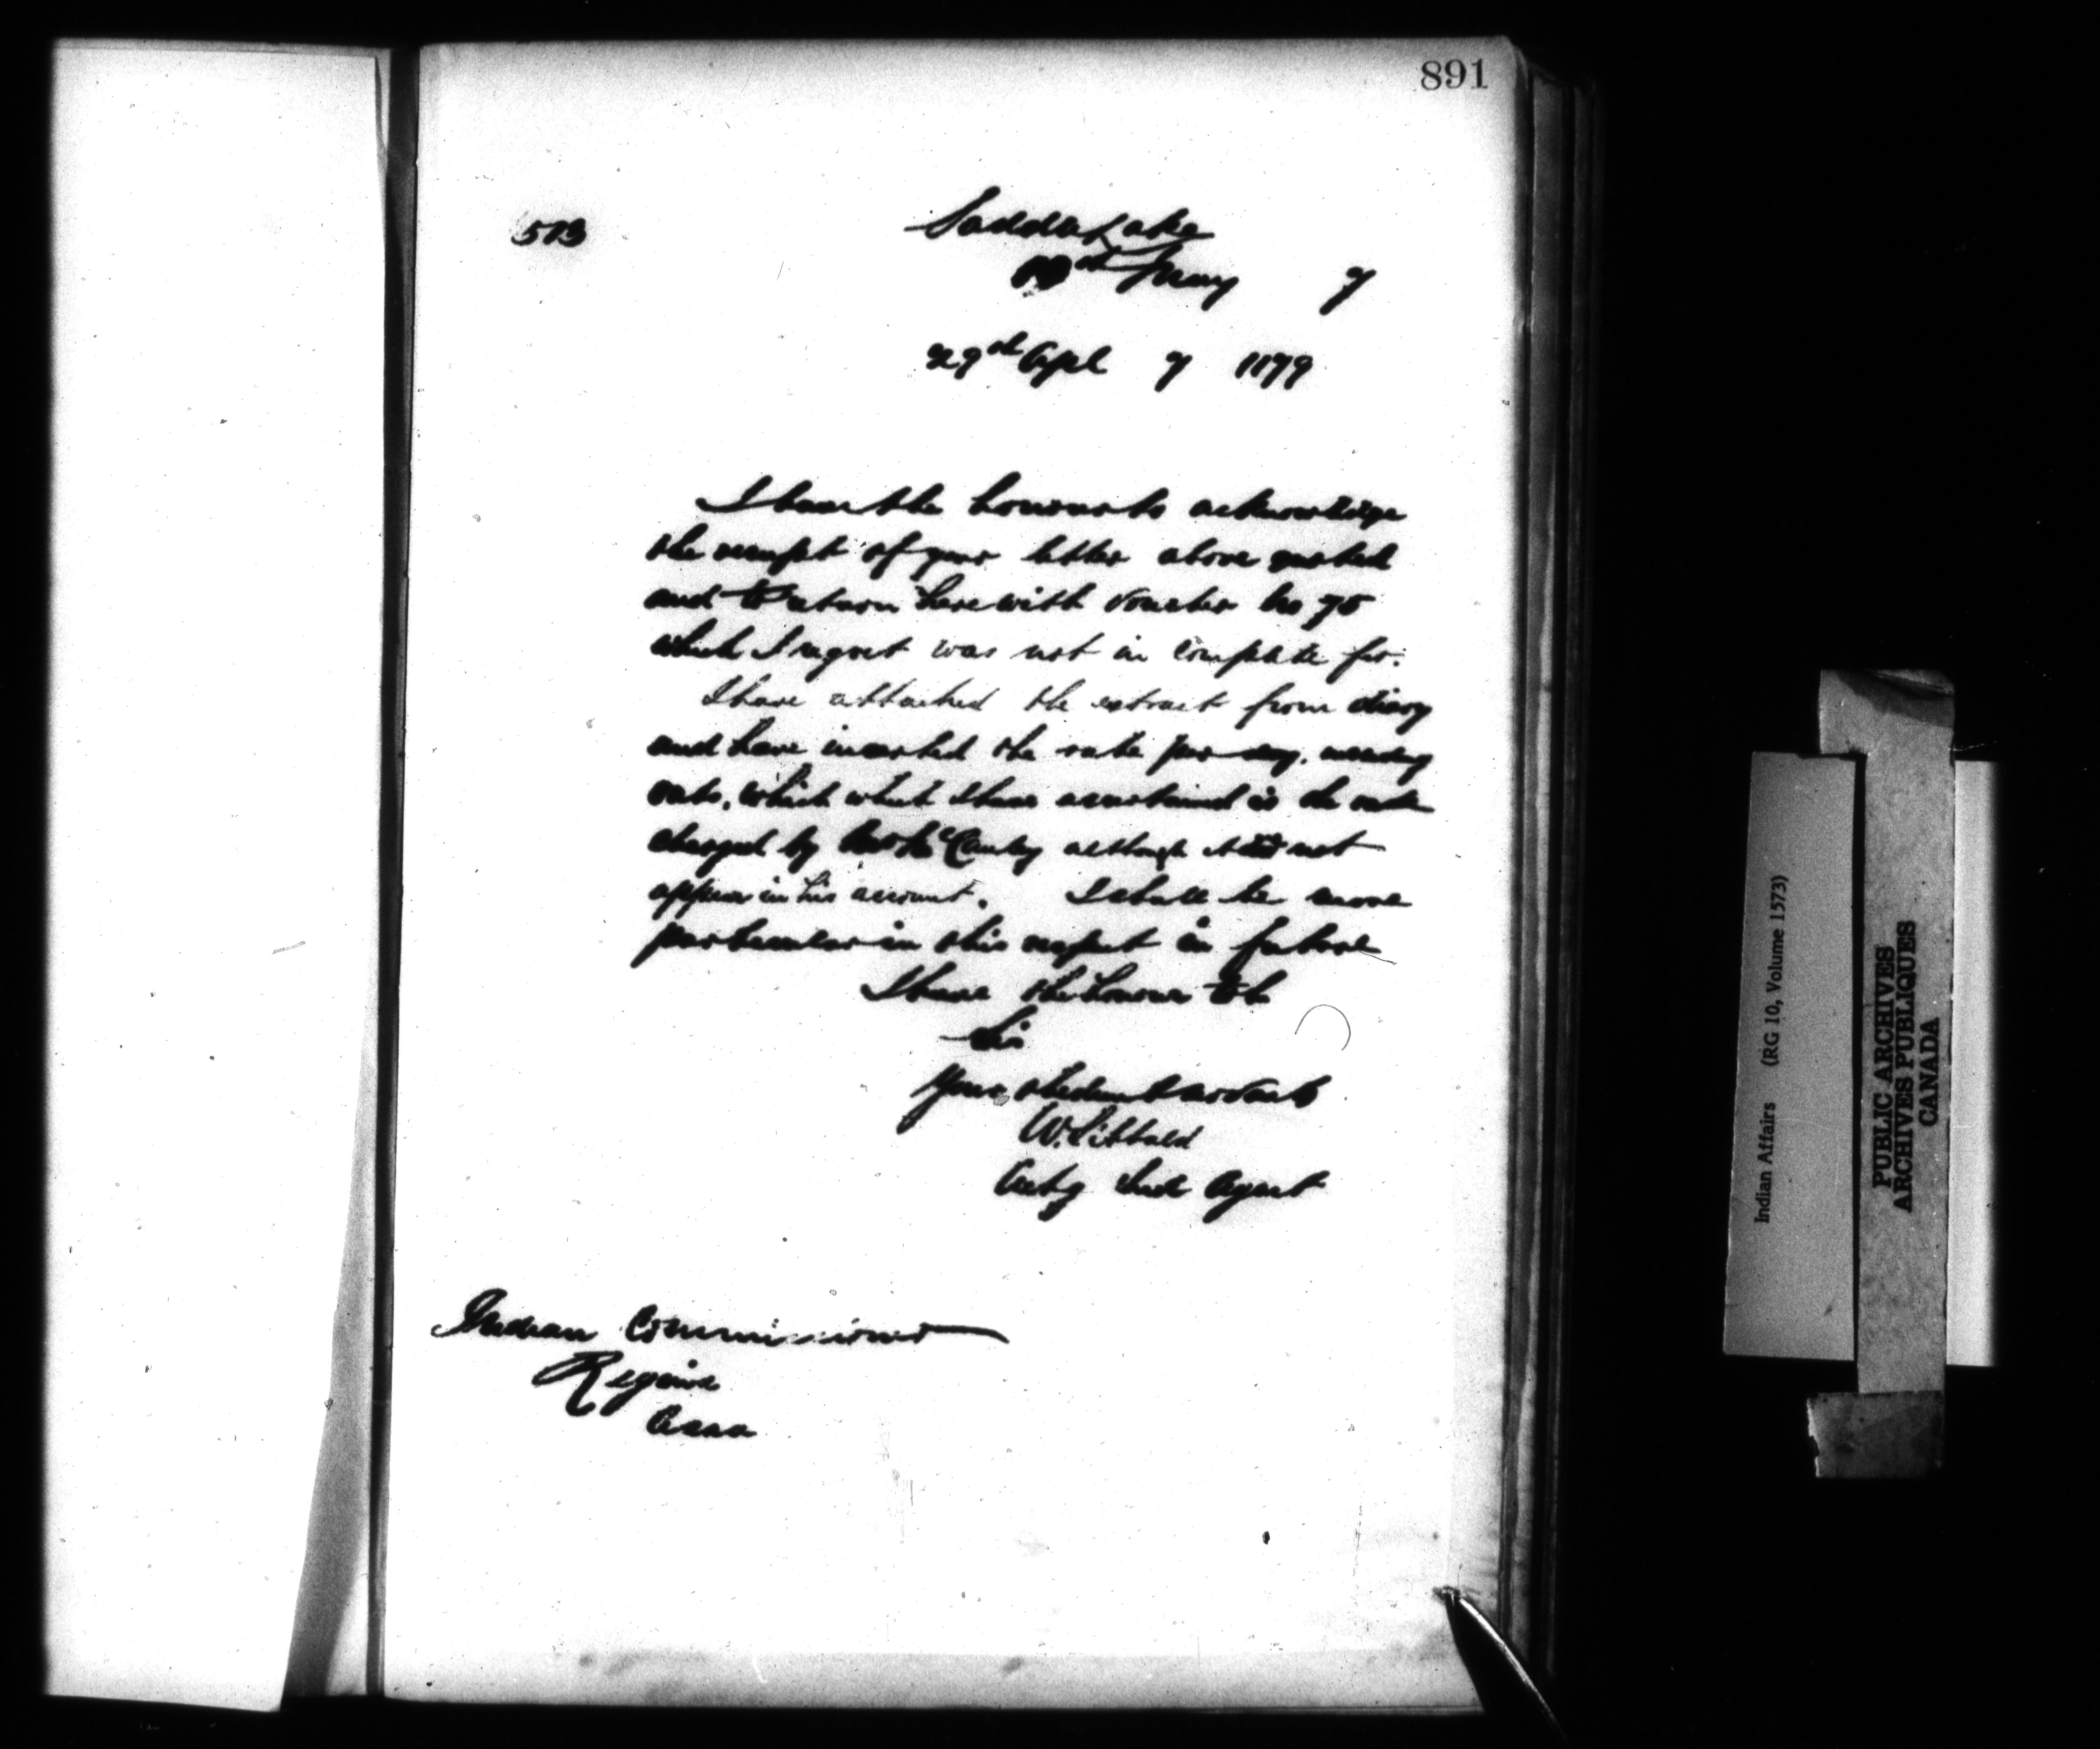 891
513
Saddle Lake
10th May 7
29th Apl 7 1179
I have the honour to acknowledge
the receipt of your letter above quoted
and to return herewith voucher No 75
which I regret was not in complete for.
I have attached the extract from diary
and have inserted the rate per
which I have ascertained is the rate
charged by McCauley although it did not
appear in his account. I shall be more
particular in this respect in future
I have the honour to be
Sir
Your obedient servant
W. Sibbald
Actg Ind Agent
Indian Commissioner
Regina
Assa
Indian Affairs (RG 10, Volume 1573)
PUBLIC ARCHIVES
ARCHIVES PUBLIQUES
CANADA